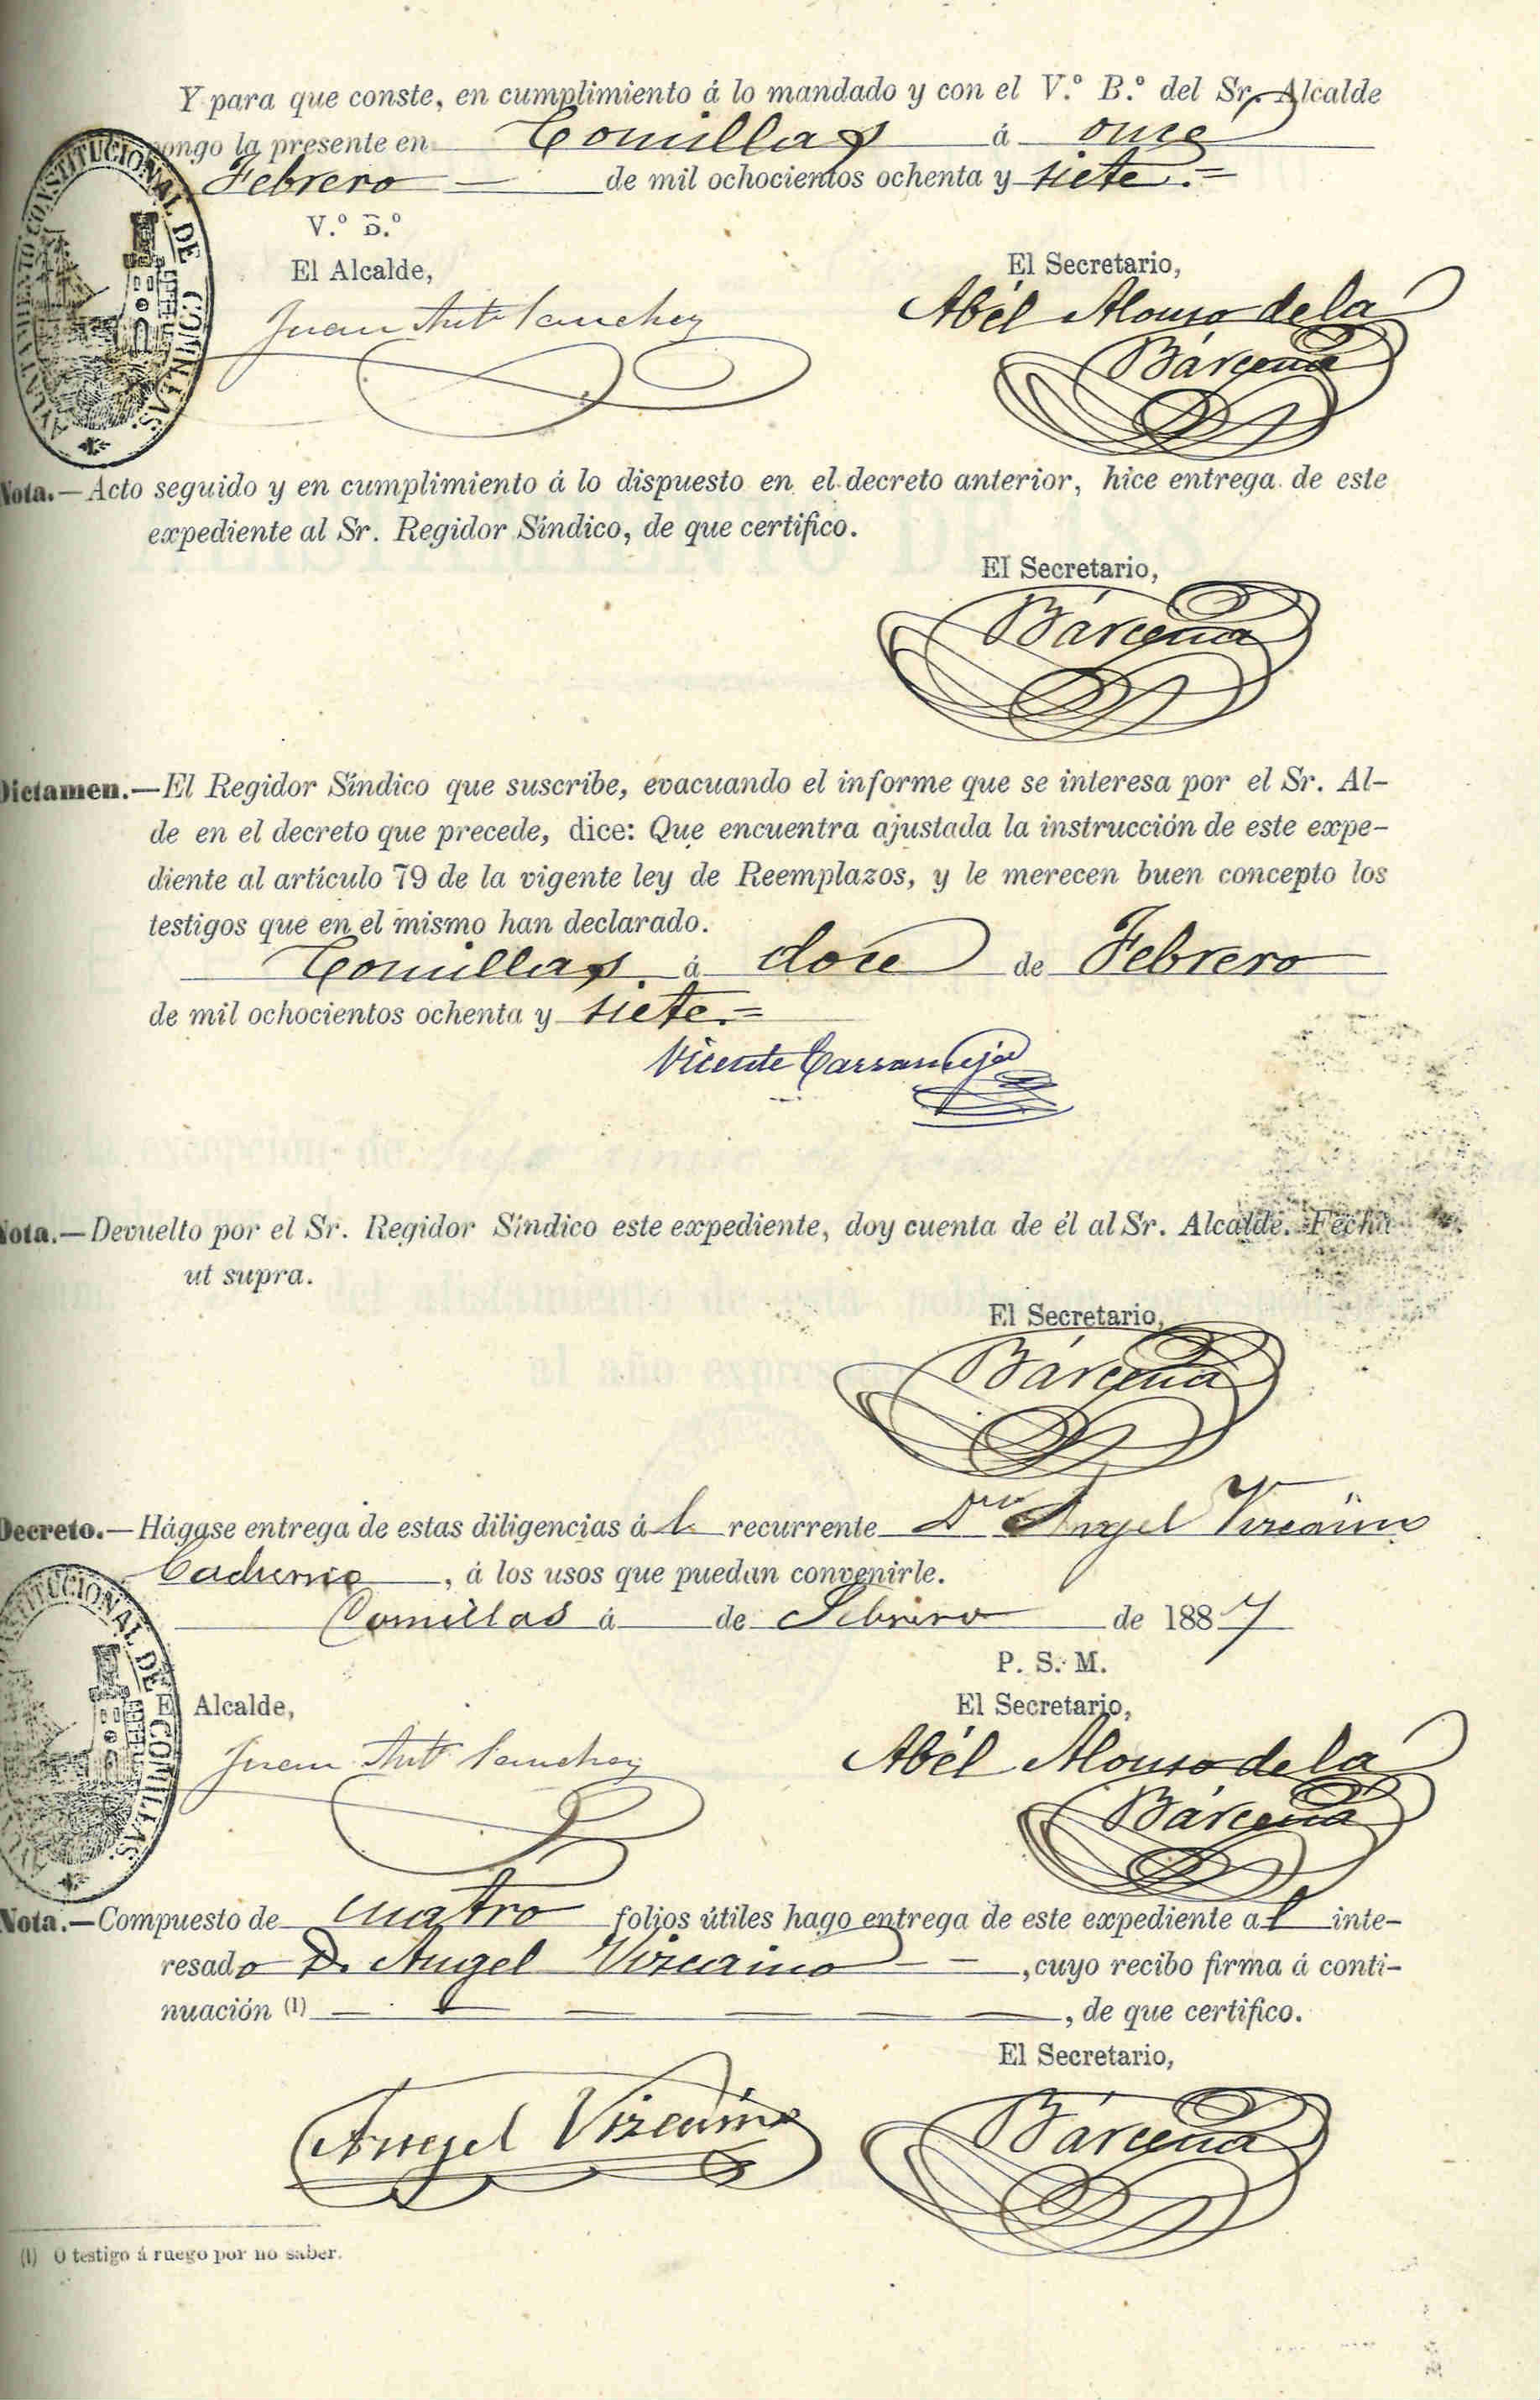 Y para que conste, en cumplimiento á lo mandado y con el V.º B.º del Sr. Alcalde
pongo la presente en Comillas á once
Febrero de mil ochocientos ochenta y siete.=
V.º B.º
El Alcalde,
El Secretario,
Juan Antº Sanchez
Abél Alonso de la
Bárcena
AYUNTAMIENTO CONSTITUCIONAL DE COMILLAS
Nota.—Acto seguido y en cumplimiento á lo dispuesto en el decreto anterior, hice entrega de este
expediente al Sr. Regidor Síndico, de que certifico.
El Secretario,
Bárcena
Dictamen.—El Regidor Síndico que suscribe, evacuando el informe que se interesa por el Sr. Al-
de en el decreto que precede, dice: Que encuentra ajustada la instrucción de este expe-
diente al artículo 79 de la vigente ley de Reemplazos, y le merecen buen concepto los
testigos que en el mismo han declarado.
Comillas á doce de Febrero
de mil ochocientos ochenta y siete.=
Vicente
Nota.—Devuelto por el Sr. Regidor Síndico este expediente, doy cuenta de él al Sr. Alcalde. Fecha
ut supra.
El Secretario,
Bárcena
Decreto.—Hágase entrega de estas diligencias á l recurrente Dn Angel Vizcaino
, á los usos que puedan convenirle.
Comillas á de Febrero de 1887
P. S. M.
El Alcalde,
El Secretario,
Juan Antº Sanchez
Abél Alonso de la
Bárcena
CONSTITUCIONAL DE COMILLAS
Nota.—Compuesto de cuatro folios útiles hago entrega de este expediente al inte-
resado D. Angel Vizcaino , cuyo recibo firma á conti-
nuación (1) , de que certifico.
El Secretario,
Angel Vizcaino
Bárcena
(1) O testigo á ruego por no saber.